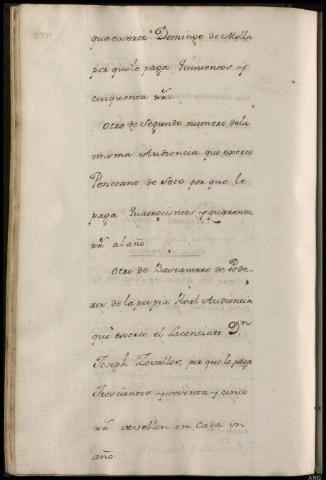 que exerce Domingo de Molla
por que le paga Quinientos y
cinquenta rr.
Otro de Segundo numero de la
misma Audiencia que exerce
Ponceano de Soto por que le
paga Quatrocientos y quarenta
rr. al año
Otro de Bastantero de Pode-
res de la propia Real Audiencia
que exerce el Licenciado Dn
Joseph Zevallos, por que le paga
Trescientos y noventa y cinco
rr. vellon en cada un
año.
ANG